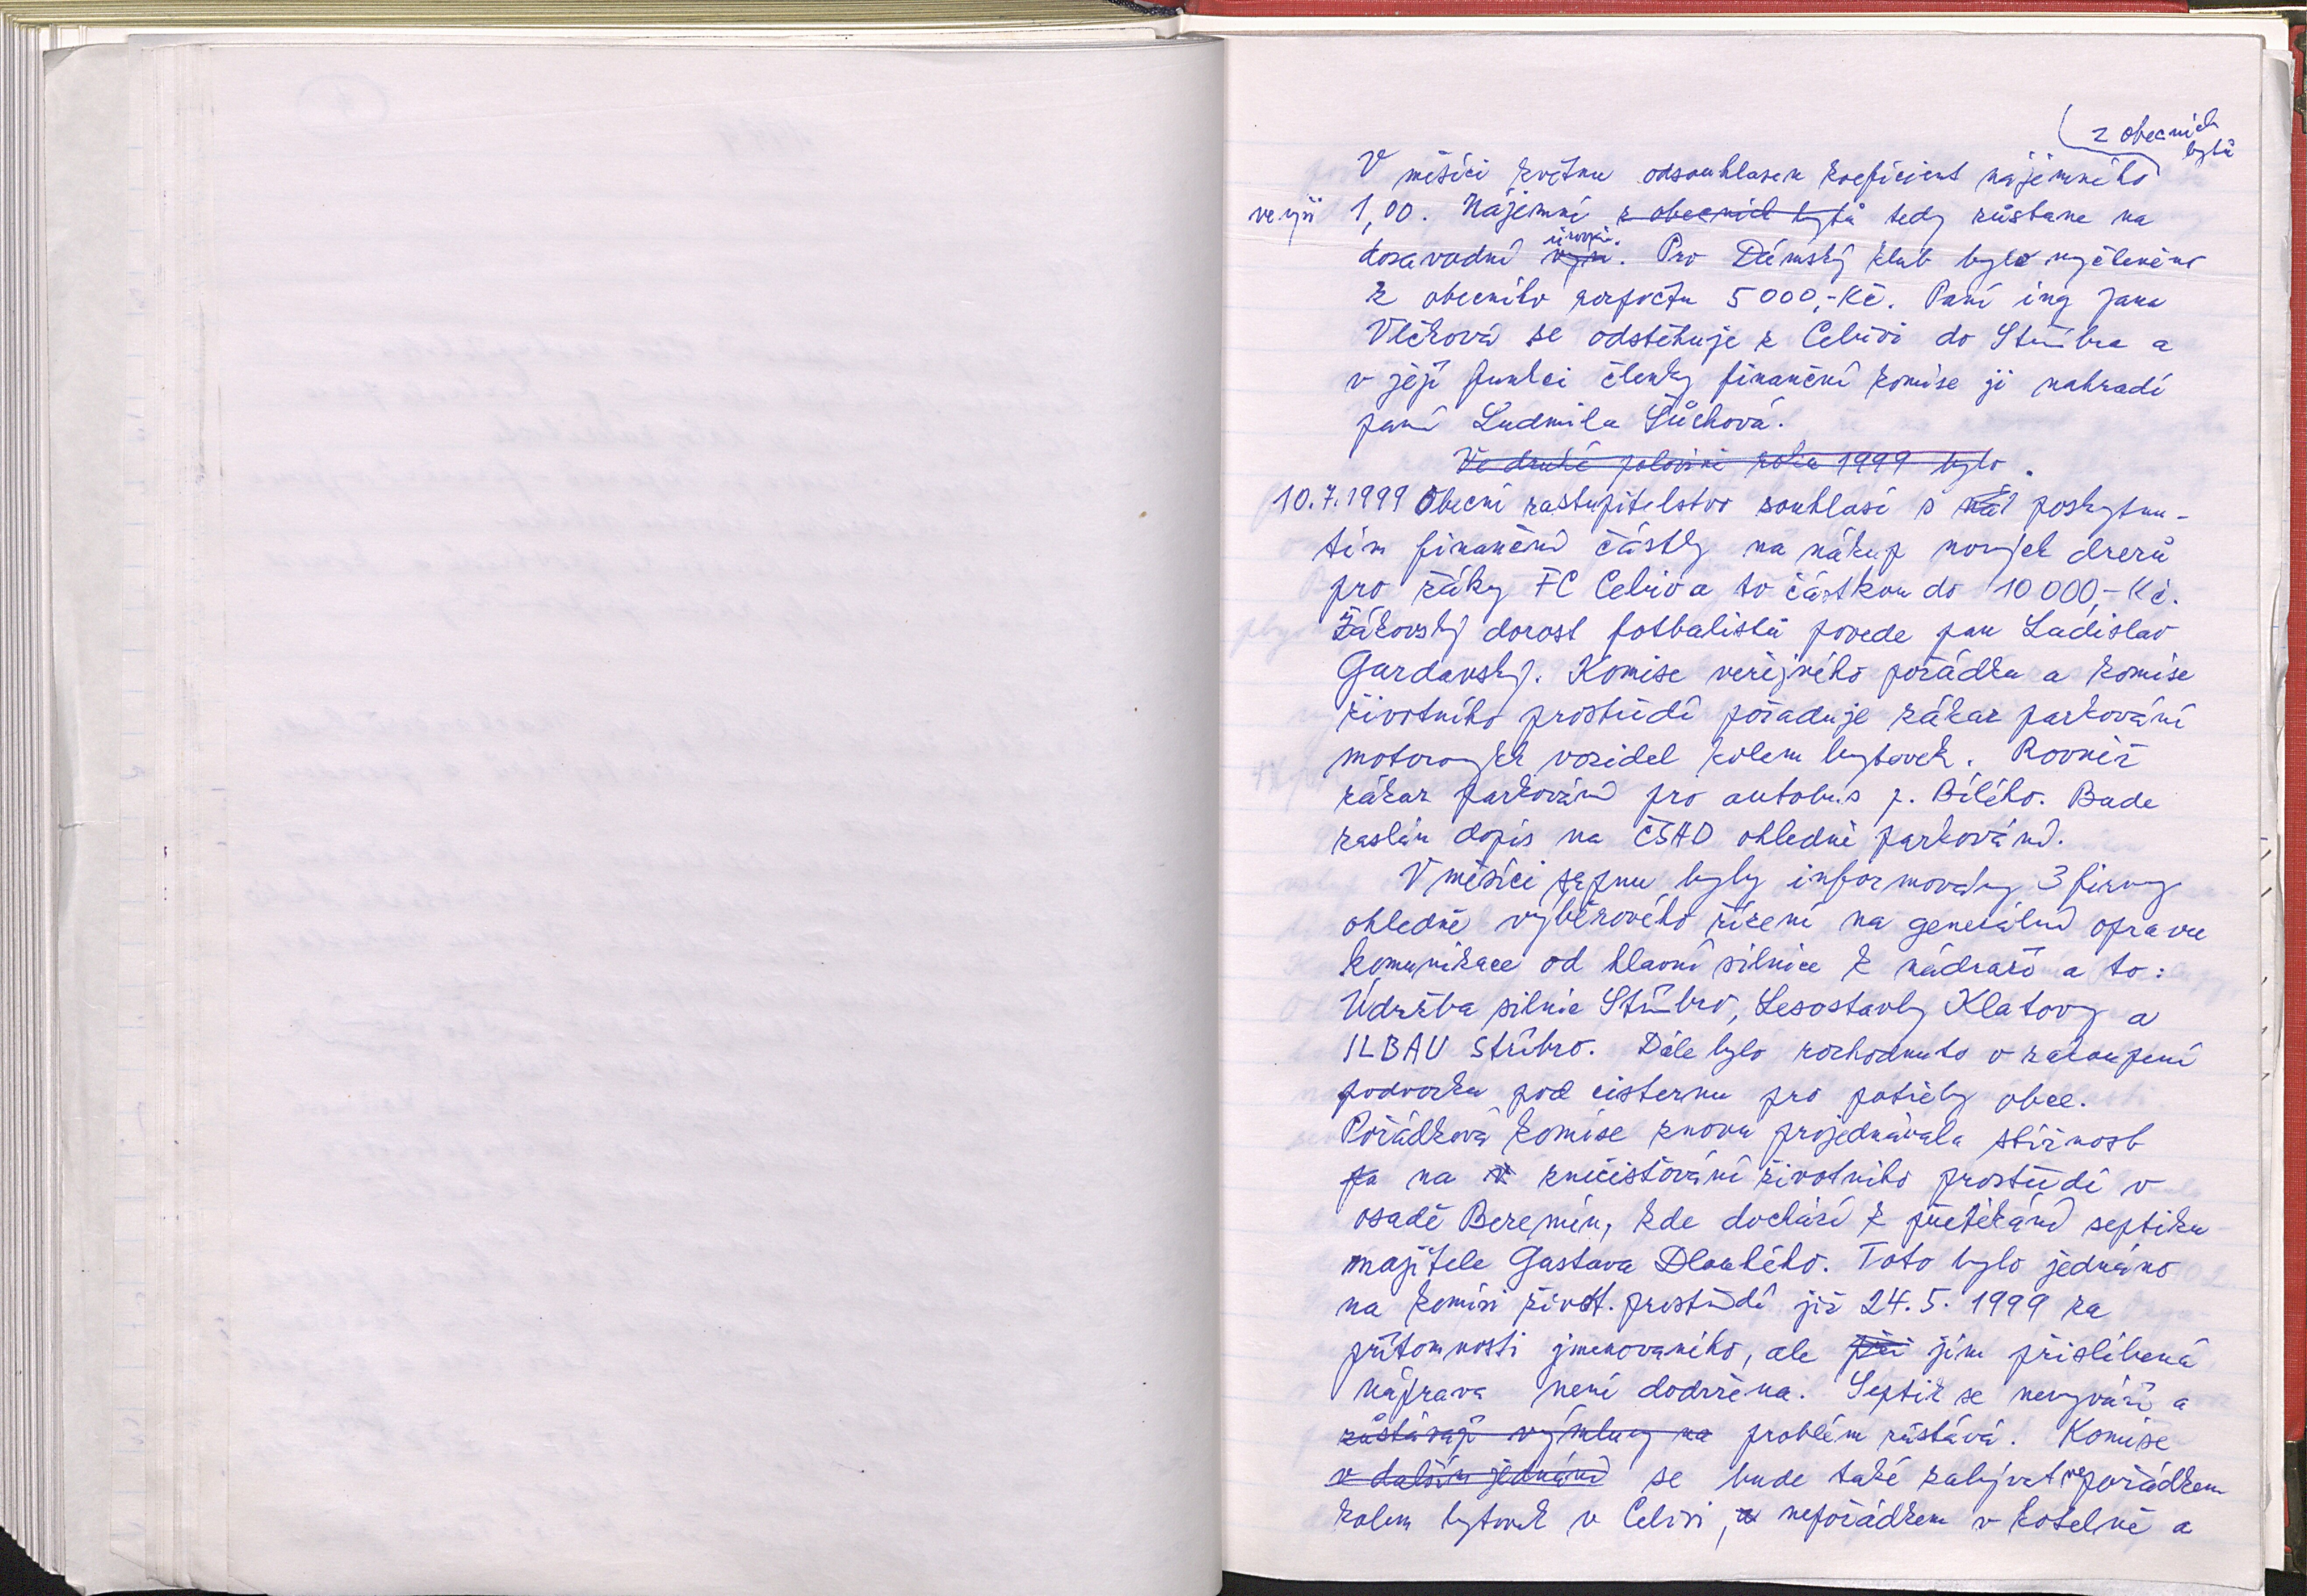 z obecních
bytů
V měsíci květnu odsouhlasen koeficient nájemního
ve výši 1,00. Nájemní z obecních bytů tedy zůstane na
úrovni.
dosavadní výši. Pro Dámský klub bylo vyčleněno
z obecního rozpočtu 5 000,- Kč. Paní ing Jana
Vlčková se odstěhuje z Cebivi do Stříbra a
v její funkci členky finanční komise ji nahradí
paní Ludmila Šůchová.
Ve druhé polovině roku 1999 bylo.
10.7.1999 Obecní zastupitelstvo souhlasí s poskytnu-
tím finanční částky na nákup nových dresů
pro žáky FC Cebiv a to částkou do 10 000,- Kč.
Žákovský dorost fotbalistů povede pan Ladislav
Gardavský. Komise veřejného pořádku a komise
životního prostředí požaduje zákaz parkování
motorových vozidel kolem bytovek. Rovněž
zákaz parkování pro autobus p. Bílého. Bude
zaslán dopis na ČSAD ohledně parkování.
V měsíci srpnu byly informovány 3 firmy
ohledně výběrového řízení na generální opravu
komunikace od hlavní silnice k nádraží a to:
Údržba silnic Stříbro, Lesostavby Klatovy a
ILBAU Stříbro. Dále bylo rozhodnuto o zakoupení
podvozku pod cisternu pro potřeby obce.
Pořádková komise znovu projednávala stížnost
pa na v znečisťování životního prostředí v
osadě Bezemín, kde dochází k přetékání septiku
majitele Gustava Dlouhého. Toto bylo jednáno
na komisi život. prostředí již 24.5.1999 za
přítomnosti jmenovaného, ale při jím přislíbená
náprava není dodržena. Septik se nevyváží a
zůstávají výmluvy na problém zůstává. Komise
v dalším jednání se bude také zabývat nepořádkem
kolem bytovek v Cebivi, a nepořádkem v kotelně a